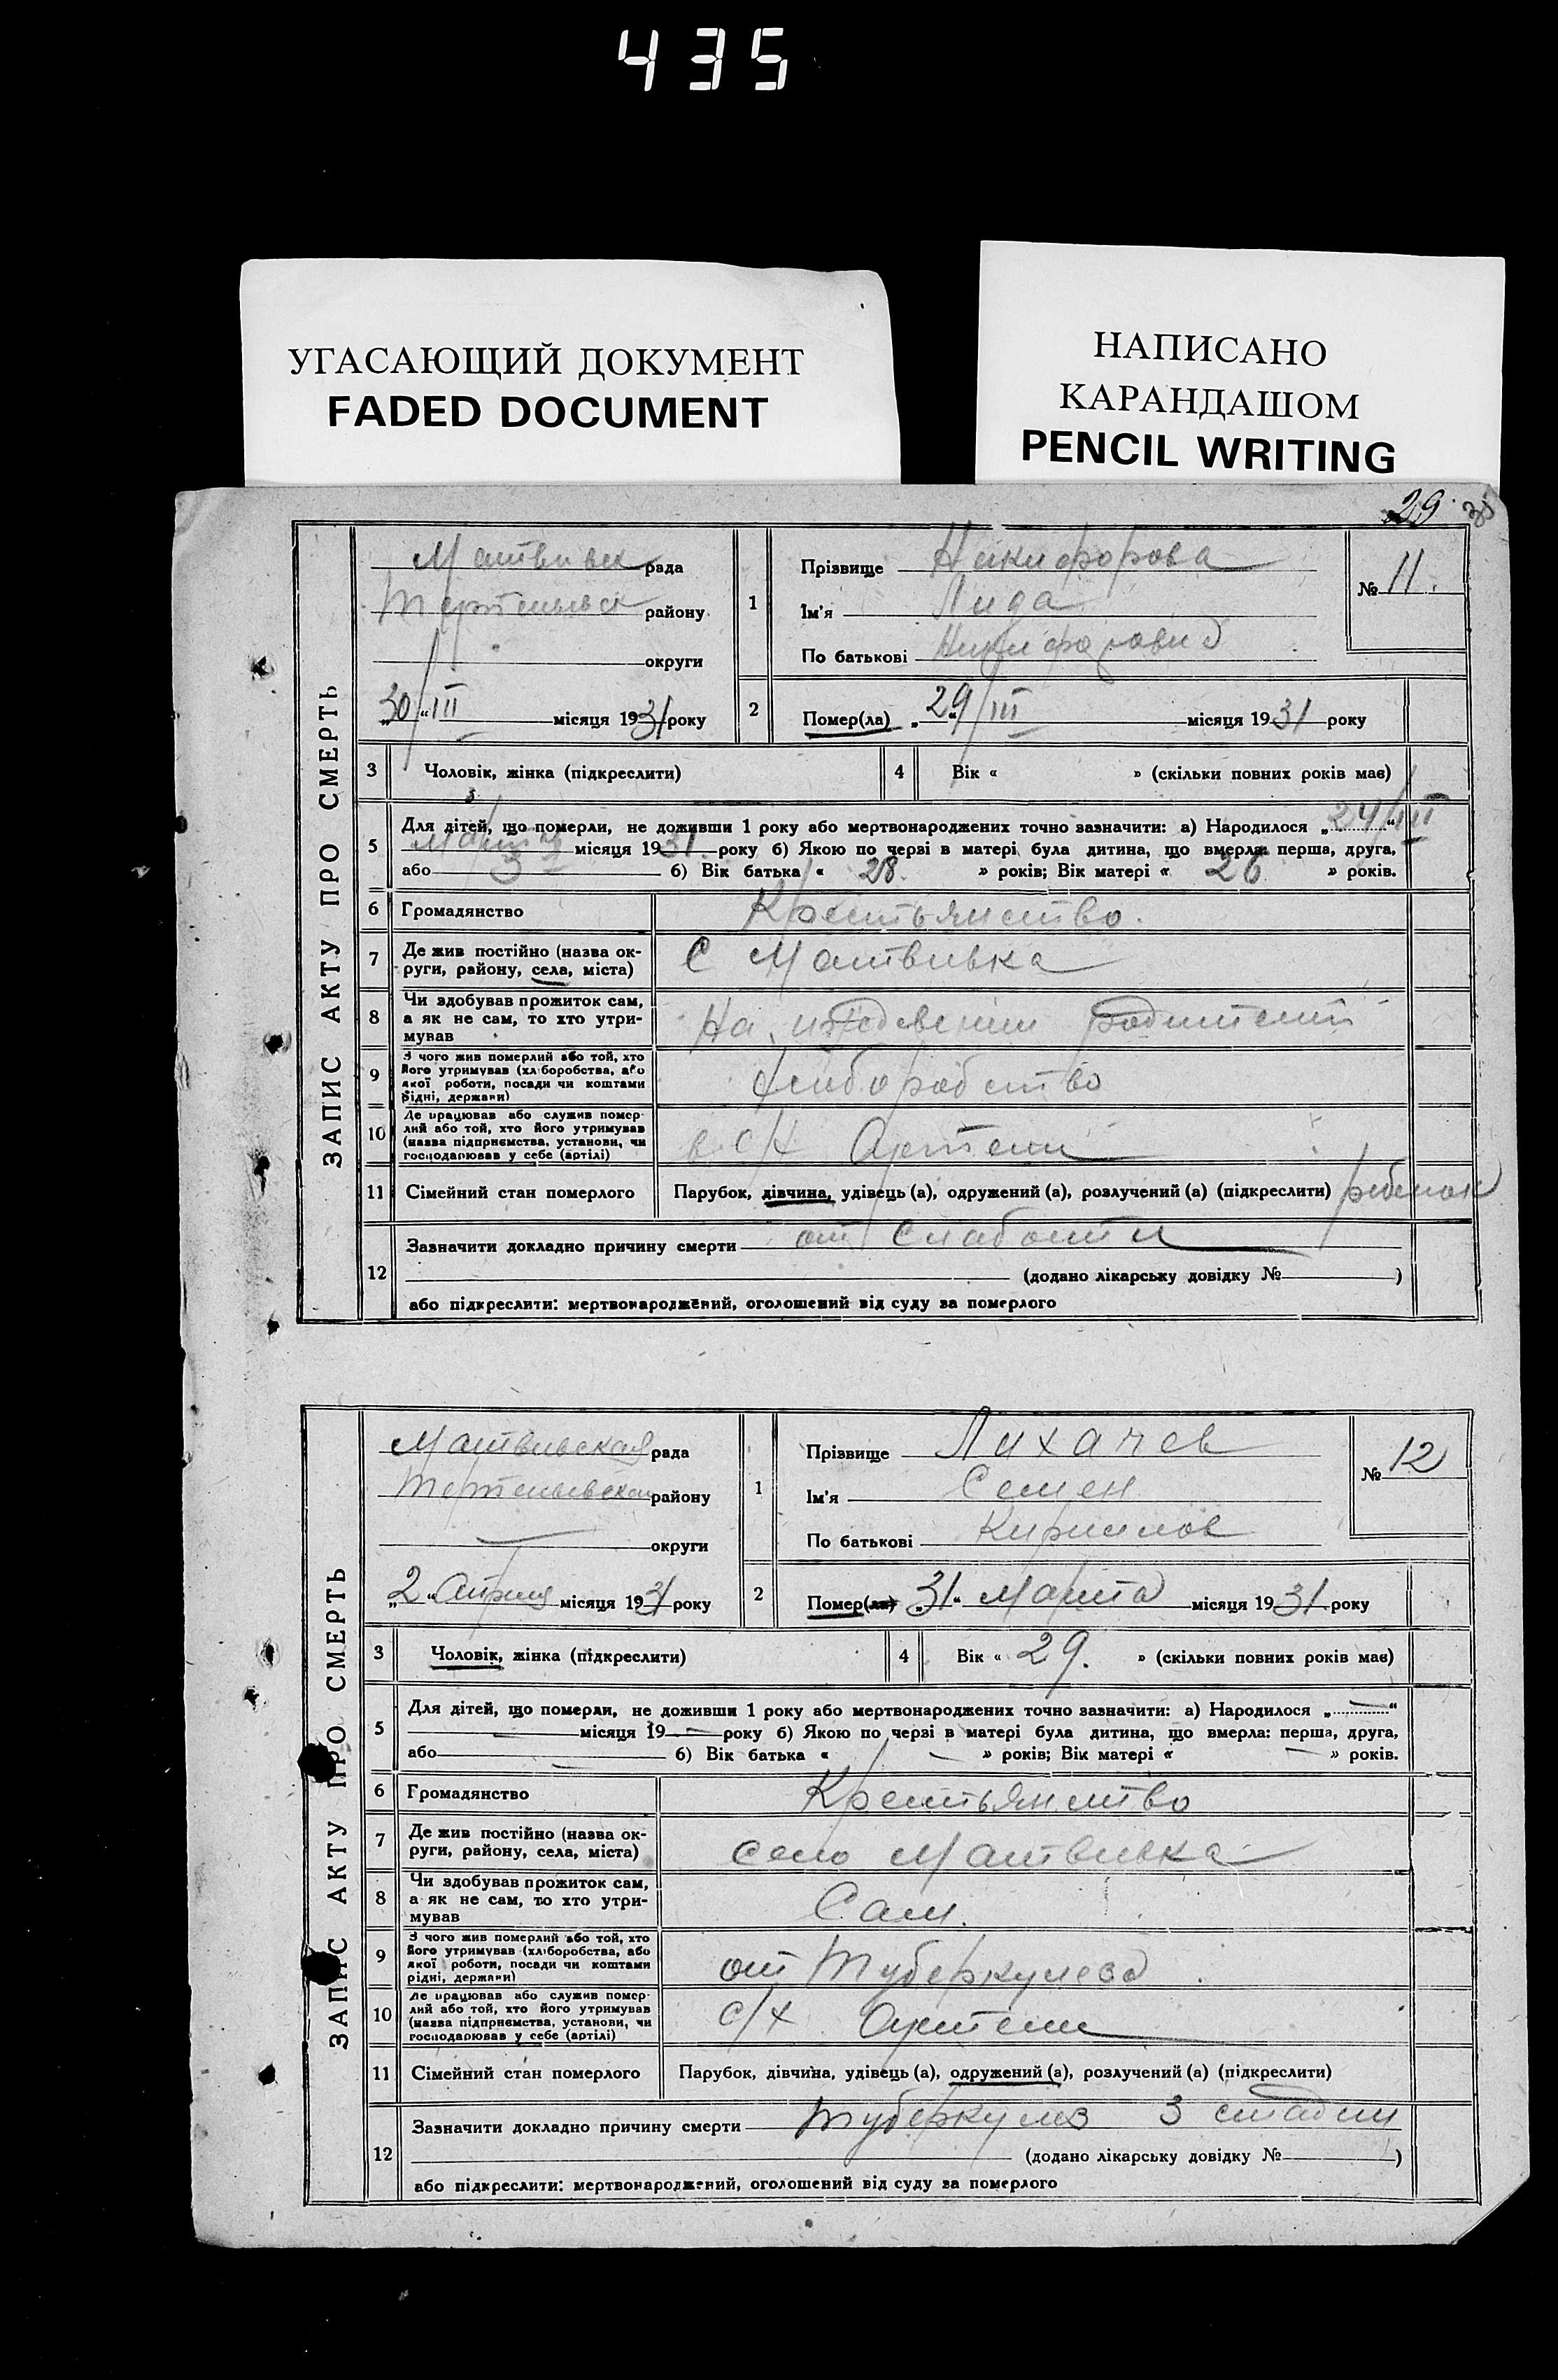 435
УГАСАЮЩИЙ ДОКУМЕНТ
FADED DOCUMENT
НАПИСАНО
КАРАНДАШОМ
PENCIL WRITING
29
ЗАПИС АКТУ ПРО СМЕРТЬ
рада
району
округи
30/III місяця 1931 року
1
Прізвище Никифорова
Ім'я Лида
По батькові
№ 11.
2
Помер(ла) „29/III місяця 1931 року
3 Чоловік, жінка (підкреслити)
4 Вік « » (скільки повних років має)
5
Для дітей, що померли, не доживши 1 року або мертвонароджених точно зазначити: а) Народилося „24/III“
Марта місяця 1931 року б) Якою по черзі в матері була дитина, що вмерла: перша, друга,
або 3 б) Вік батька « 28. » років; Вік матері « 26 » років.
6 Громадянство Крестьянство.
7 Де жив постійно (назва ок-
руги, району, села, міста) С Матвивка
8 Чи здобував прожиток сам,
а як не сам, то хто утри-
мував
На родителей
9 З чого жив померлий або той, хто
його утримував (хліборобства, або
якої роботи, посади чи коштами
рідні, держави)
10 Де працював або служив помер-
лий або той, хто його утримував
(назва підприємства, установи, чи
господарював у себе (артілі)
в с/х Артели
11 Сімейний стан померлого Парубок, дівчина, удівець (а), одружений (а), розлучений (а) (підкреслити) ребенок
12
Зазначити докладно причину смерти от слабости
(додано лікарську довідку № )
або підкреслити: мертвонароджений, оголошений від суду за померлого
ЗАПИС АКТУ ПРО СМЕРТЬ
Матвивская рада
району
округи
„2“ Априля місяця 1931 року
1
Прізвище Лихачев
Ім'я Семен
По батькові Кирилов
№ 12
2
Помер(ла) „31“ Марта місяця 1931 року
3 Чоловік, жінка (підкреслити)
4 Вік « 29. » (скільки повних років має)
5
Для дітей, що померли, не доживши 1 року або мертвонароджених точно зазначити: а) Народилося „—“
— місяця 19— року б) Якою по черзі в матері була дитина, що вмерла: перша, друга,
або — б) Вік батька « — » років; Вік матері « — » років.
6 Громадянство Крестьянство
7 Де жив постійно (назва ок-
руги, району, села, міста) село Матвивка
8 Чи здобував прожиток сам,
а як не сам, то хто утри-
мував
Сам.
9 З чого жив померлий або той, хто
його утримував (хліборобства, або
якої роботи, посади чи коштами
рідні, держави)
от Туберкулеза
10 Де працював або служив помер-
лий або той, хто його утримував
(назва підприємства, установи, чи
господарював у себе (артілі)
с/х Артели
11 Сімейний стан померлого Парубок, дівчина, удівець (а), одружений (а), розлучений (а) (підкреслити)
12
Зазначити докладно причину смерти туберкулез 3 стадии
(додано лікарську довідку № )
або підкреслити: мертвонароджений, оголошений від суду за померлого